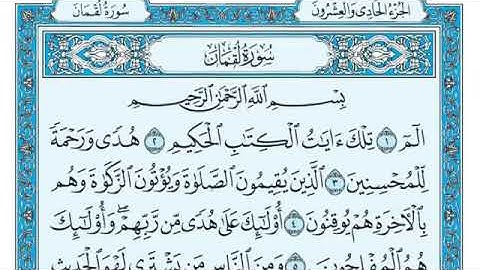 سُورَةُ لُقْمَانَ الجُزْءُ الحَادِي وَالعِشْرُونَ
سُورَةُ لُقْمَانَ
بِسْمِ اللَّهِ الرَّحْمَٰنِ الرَّحِيمِ
الٓمٓ ١ تِلْكَ ءَايَٰتُ ٱلْكِتَٰبِ ٱلْحَكِيمِ ٢ هُدًى وَرَحْمَةً
لِّلْمُحْسِنِينَ ٣ ٱلَّذِينَ يُقِيمُونَ ٱلصَّلَوٰةَ وَيُؤْتُونَ ٱلزَّكَوٰةَ وَهُم
بِٱلْءَاخِرَةِ هُمْ يُوقِنُونَ ٤ أُو۟لَٰٓئِكَ عَلَىٰ هُدًى مِّن رَّبِّهِمْ ۖ وَأُو۟لَٰٓئِكَ
هُمُ ٱلْمُفْلِحُونَ ٥ وَمِنَ ٱلنَّاسِ مَن يَشْتَرِى لَهْوَ ٱلْحَدِيثِ